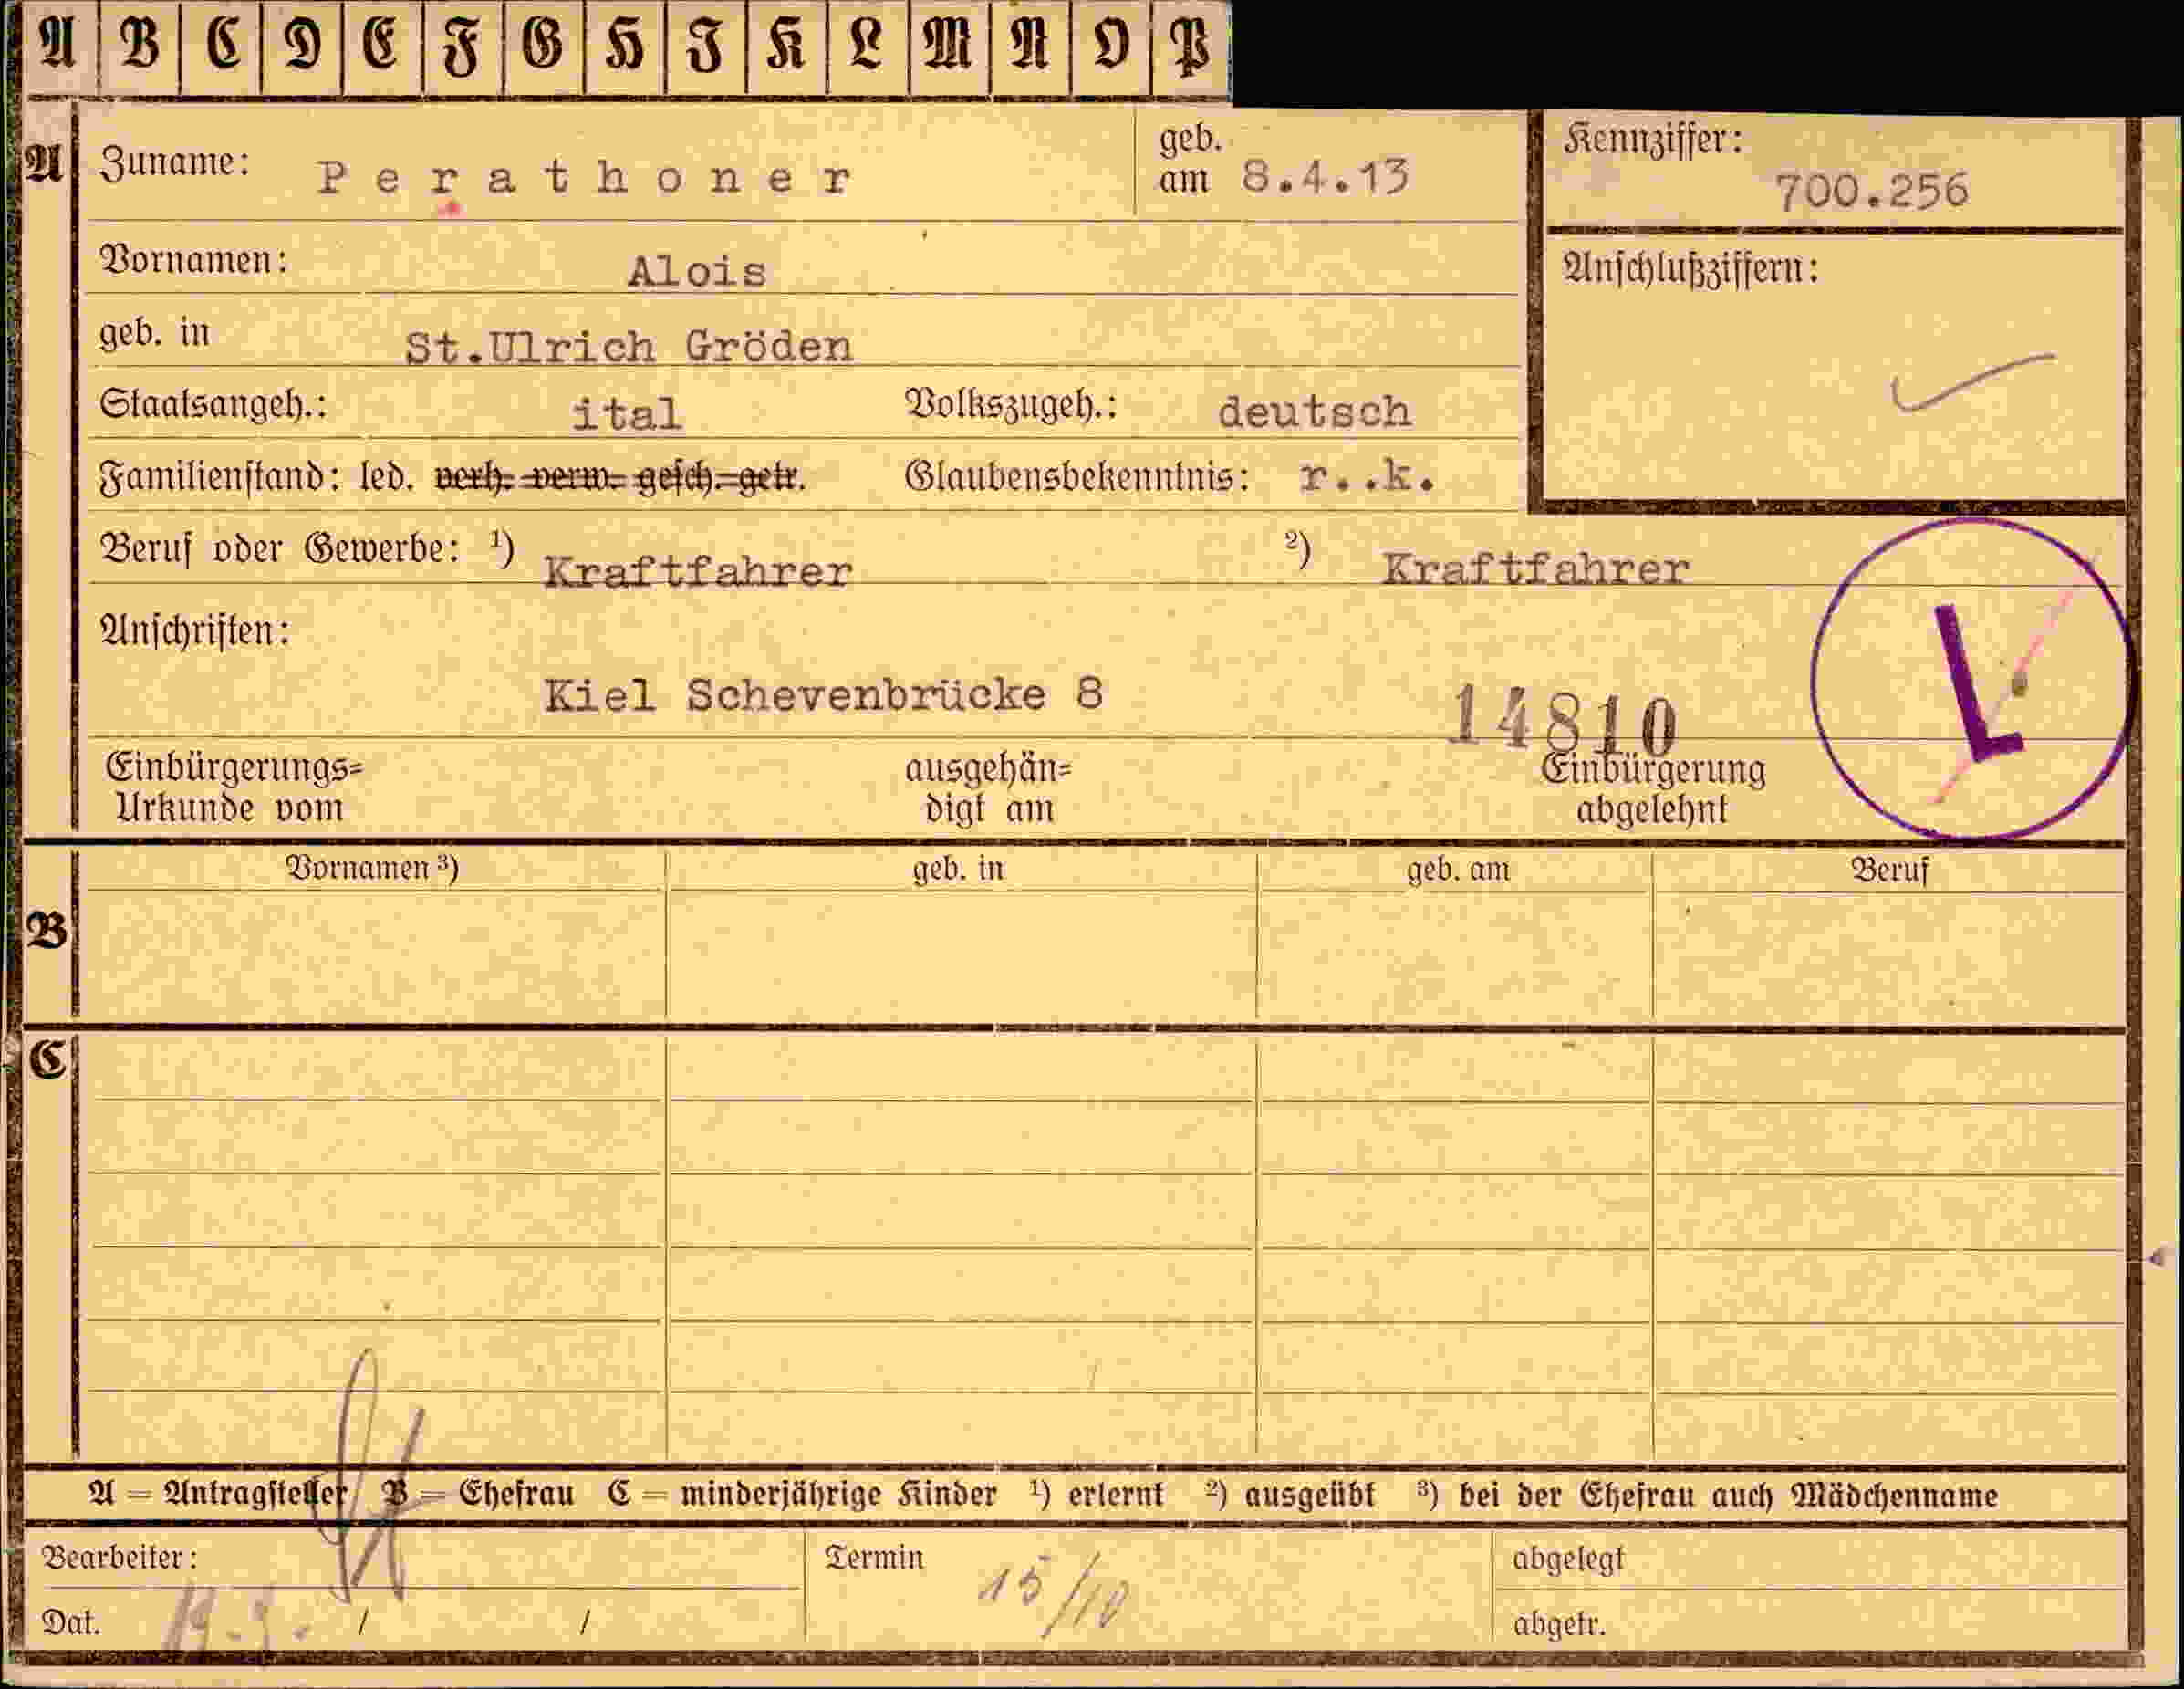 A B C D E F G H I K L M N O P
A Zuname: Perathoner geb. am 8.4.13 Kennziffer: 700.256
Vornamen: Alois Anschlußziffern:
geb. in St.Ulrich Gröden
Staatsangeh.: ital Volkszugeh.: deutsch
Familienstand: led. verh. verw. gesch. getr. Glaubensbekenntnis: r..k.
Beruf oder Gewerbe: ¹) Kraftfahrer ²) Kraftfahrer
Anschriften:
Kiel Schevenbrücke 8 14810 L
Einbürgerungs= ausgehän= Einbürgerung
Urkunde vom digt am abgelehnt
Vornamen ³) geb. in geb. am Beruf
B
C
A = Antragsteller B = Ehefrau C = minderjährige Kinder ¹) erlernt ²) ausgeübt ³) bei der Ehefrau auch Mädchenname
Bearbeiter: Termin 15/10 abgelegt
Dat. / / abgetr.